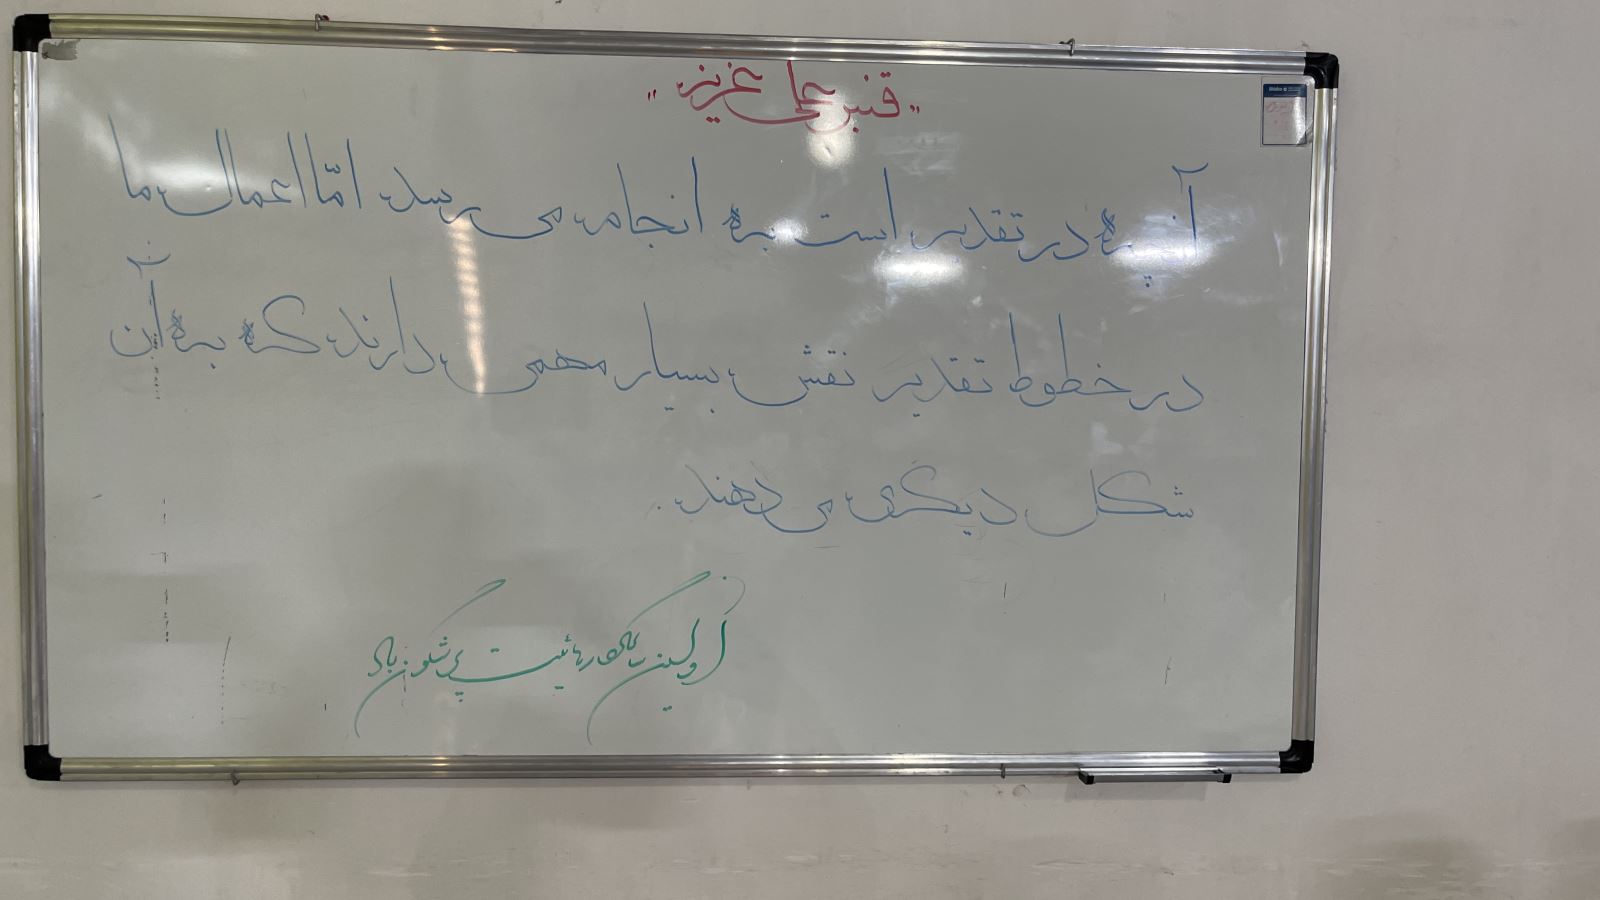 "قنبرعلی عزیز"
آنچه در تقدیر است به انجام می رسد، امّا اعمال ما
در خطوط تقدیر نقش بسیار مهمی دارند که به آن
شکل دیگری می دهند.
اولین سالگرد رهائیت پرشگون باد